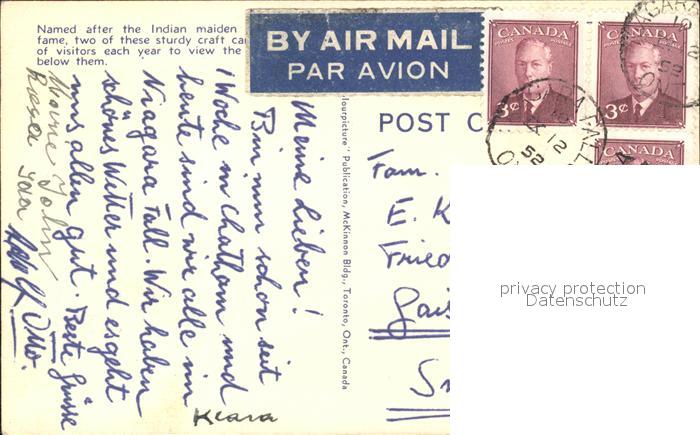 Named after the Indian maiden
fame, two of these sturdy craft
of visitors each year to view the
below them.
BY AIR MAIL
PAR AVION
CANADA
POSTES POSTAGE
3¢
CANADA
POSTES POSTAGE
3¢
CANADA
NIAGARA FALLS
12
52
POST C
"Colourpicture" Publication, McKinnon Bldg., Toronto, Ont., Canada
Fam.
E. K
Meine Lieben!
Bin nun schon seit
1 Woche in Chatham und
heute sind wir alle im
Niagara Fall. Wir haben
schönes Wetter und es geht
uns allen gut. Beste Grüsse
John
Otto.
Klara
privacy protection
Datenschutz